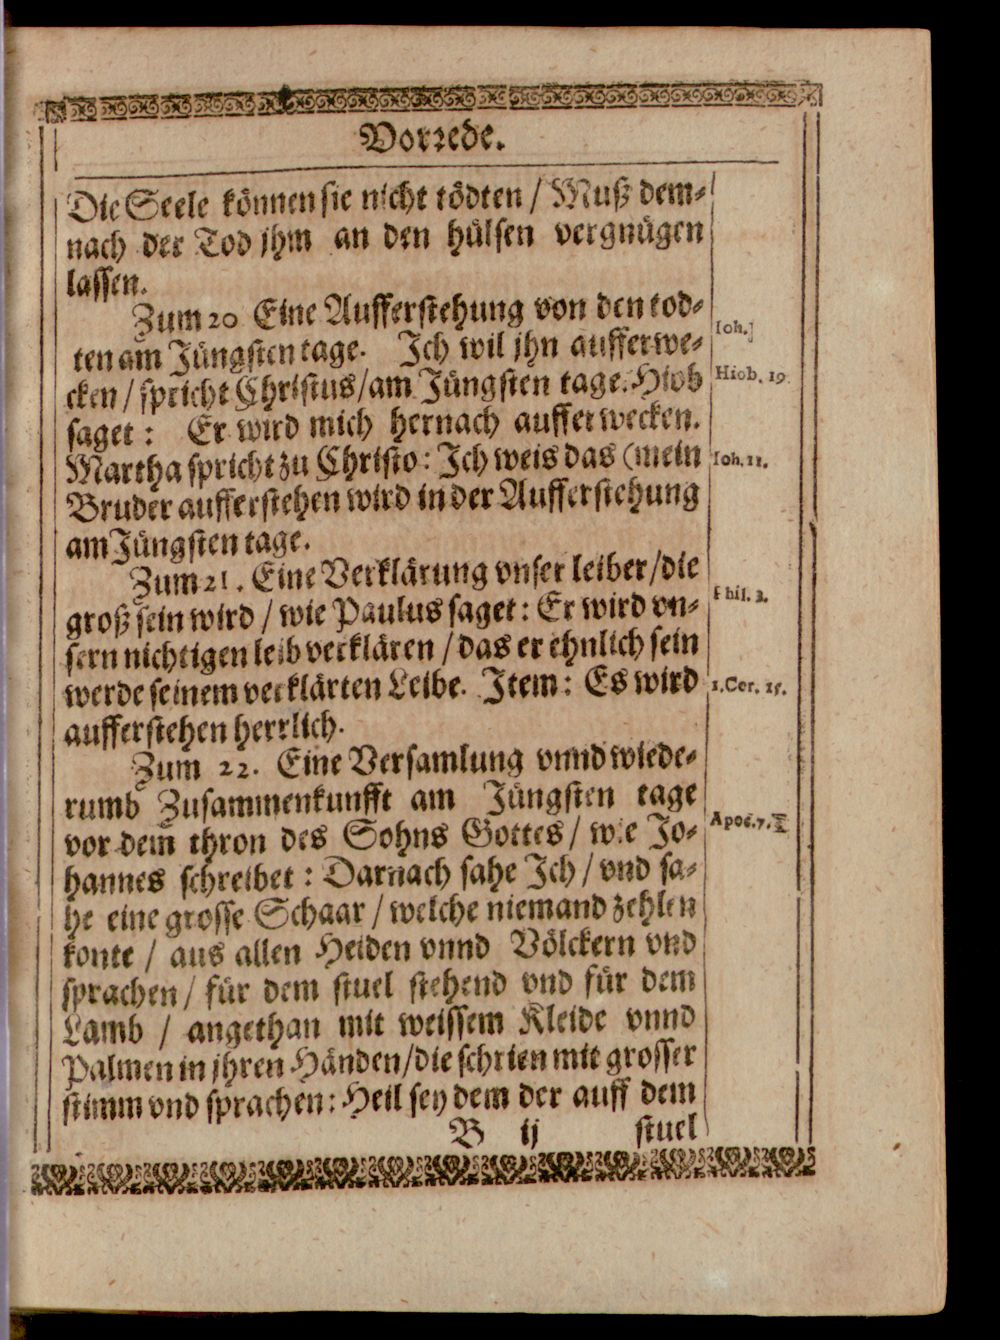 Vorrede.
Die Seele können sie nicht tödten / Muß dem-
nach der Tod jhm an den hülsen vergnügen
lassen.
Zum 20 Eine Aufferstehung von den tod-
ten am Jüngsten tage. Jch wil jhn aufferwe-
Ioh.
cken / spricht Christus / am Jüngsten tage. Hiob
Hiob. 19
saget: Er wird mich hernach aufferwecken.
Martha spricht zu Christo: Jch weis das (mein
Ioh. 11.
Bruder aufferstehen wird in der Aufferstehung
am Jüngsten tage.
Zum 21. Eine Verklärung vnser leiber / die
groß sein wird / wie Paulus saget: Er wird vn-
Phil. 3.
sern nichtigen leib verklären / das er ehnlich sein
werde seinem verklärten Leibe. Jtem: Es wird
1. Cor. 15.
aufferstehen herrlich.
Zum 22. Eine Versamlung vnnd wiede-
rumb Zusammenkunfft am Jüngsten tage
vor dem thron des Sohns Gottes / wie Jo-
Apoc. 7.
hannes schreibet: Darnach sahe Jch / vnd sa-
he eine grosse Schaar / welche niemand zehlen
konte / aus allen Heiden vnnd Völckern vnd
sprachen / für dem stuel stehend vnd für dem
Lamb / angethan mit weissem Kleide vnnd
Palmen in jhren Händen / die schrien mit grosser
stimm vnd sprachen: Heil sey dem der auff dem
B ij stuel